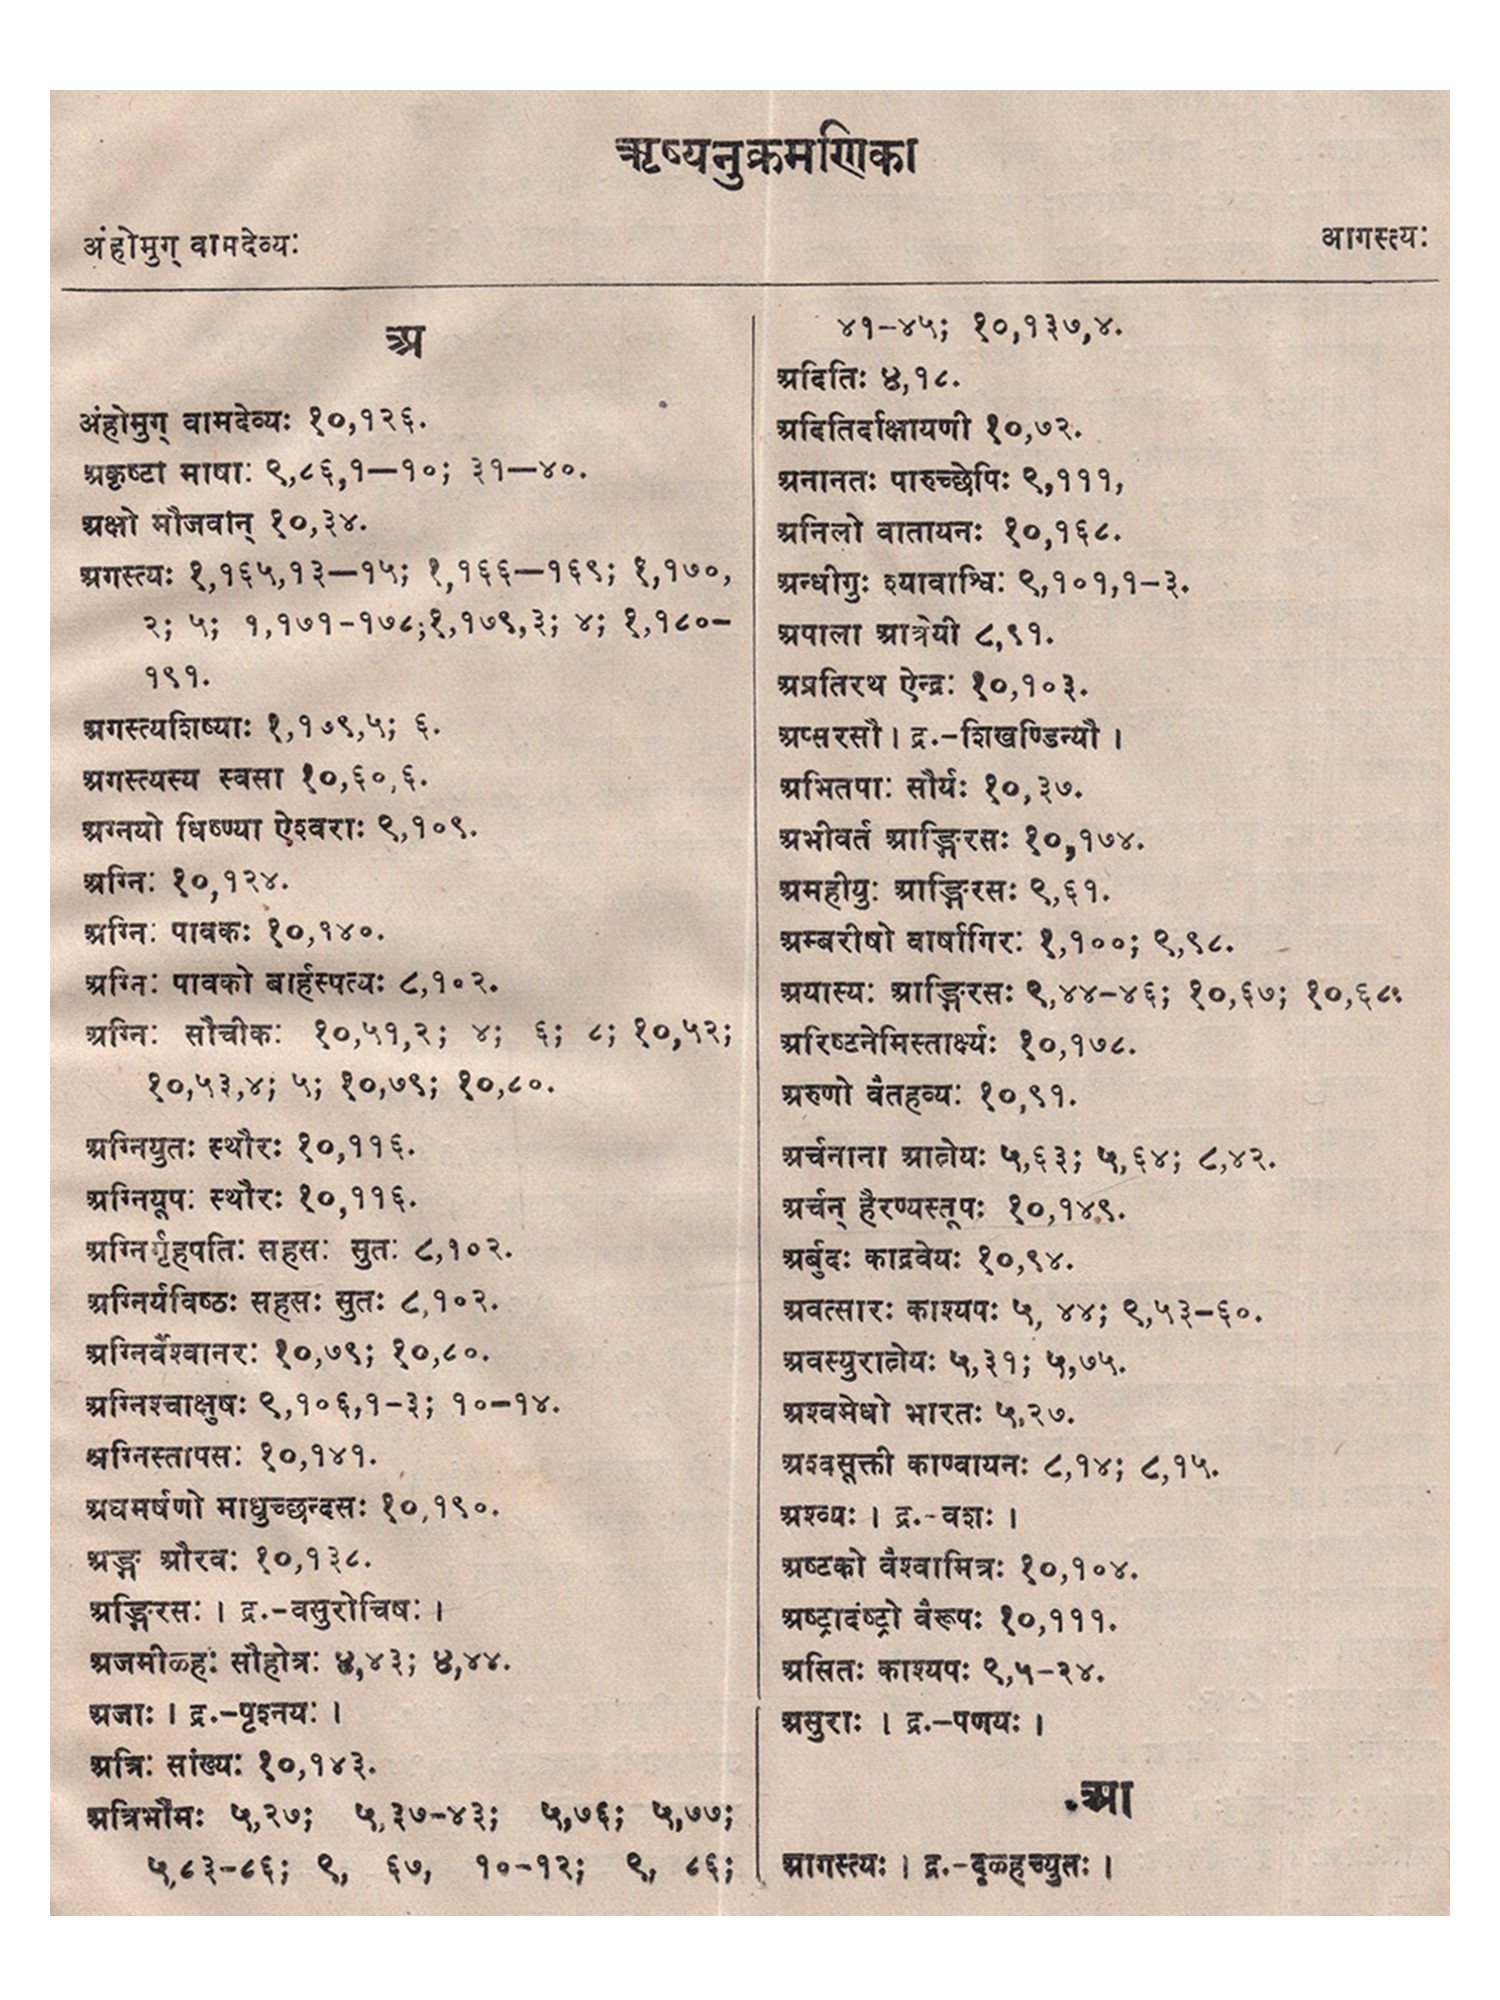 ऋष्यनुक्रमणिका
अंहोमुग् वामदेव्यः
आगस्त्यः
अ
अंहोमुग् वामदेव्यः १०,१२६.
अकृष्टा माषाः ९,८६,१—१०; ३१—४०.
अक्षो मौजवान् १०,३४.
अगस्त्यः १,१६५,१३—१५; १,१६६—१६९; १,१७०,
२; ५; १,१७१-१७८;१,१७९,३; ४; १,१८०-
१९१.
अगस्त्यशिष्याः १,१७९,५; ६.
अगस्त्यस्य स्वसा १०,६०,६.
अग्नयो धिष्ण्या ऐश्वराः ९,१०९.
अग्निः १०,१२४.
अग्निः पावकः १०,१४०.
अग्निः पावको बार्हस्पत्यः ८,१०२.
अग्निः सौचीकः १०,५१,२; ४; ६; ८; १०,५२;
१०,५३,४; ५; १०,७९; १०,८०.
अग्नियुतः स्थौरः १०,११६.
अग्नियूपः स्थौरः १०,११६.
अग्निर्गृहपतिः सहसः सुतः ८,१०२.
अग्निर्यविष्ठः सहसः सुतः ८,१०२.
अग्निर्वैश्वानरः १०,७९; १०,८०.
अग्निश्चाक्षुषः ९,१०६,१-३; १०-१४.
अग्निस्तापसः १०,१४१.
अघमर्षणो माधुच्छन्दसः १०,१९०.
अङ्ग औरवः १०,१३८.
अङ्गिरसः । द्र.-वसुरोचिषः ।
अजमीळ्हः सौहोत्रः ४,४३; ४,४४.
अजाः । द्र.-पृश्नयः ।
अत्रिः सांख्यः १०,१४३.
अत्रिर्भौमः ५,२७; ५,३७-४३; ५,७६; ५,७७;
५,८३-८६; ९, ६७, १०-१२; ९, ८६;
४१-४५; १०,१३७,४.
अदितिः ४,१८.
अदितिर्दाक्षायणी १०,७२.
अनानतः पारुच्छेपिः ९,१११,
अनिलो वातायनः १०,१६८.
अन्धीगुः श्यावाश्विः ९,१०१,१-३.
अपाला आत्रेयी ८,९१.
अप्रतिरथ ऐन्द्रः १०,१०३.
अप्सरसौ । द्र.-शिखण्डिन्यौ ।
अभितपाः सौर्यः १०,३७.
अभीवर्त आङ्गिरसः १०,१७४.
अमहीयुः आङ्गिरसः ९,६१.
अम्बरीषो वार्षागिरः १,१००; ९,९८.
अयास्यः आङ्गिरसः ९,४४-४६; १०,६७; १०,६८.
अरिष्टनेमिस्तार्क्ष्यः १०,१७८.
अरुणो वैतहव्यः १०,९१.
अर्चनाना आत्रेयः ५,६३; ५,६४; ८,४२.
अर्चन् हैरण्यस्तूपः १०,१४९.
अर्बुदः काद्रवेयः १०,९४.
अवत्सारः काश्यपः ५, ४४; ९,५३-६०.
अवस्युरात्रेयः ५,३१; ५,७५.
अश्वमेधो भारतः ५,२७.
अश्वसूक्ती काण्वायनः ८,१४; ८,१५.
अश्व्यः । द्र.-वशः ।
अष्टको वैश्वामित्रः १०,१०४.
अष्ट्रादंष्ट्रो वैरूपः १०,१११.
असितः काश्यपः ९,५-२४.
असुराः । द्र.-पणयः ।
आ
आगस्त्यः । द्र.-दृळ्हच्युतः ।